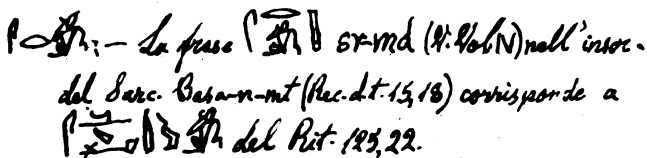 :— La frase sr-md (V. Vol N) nell'inscr.
del Sarc. Basa-n-mt (Rec. d. t. 15, 18) corrisponde a
del Rit. 125, 22.